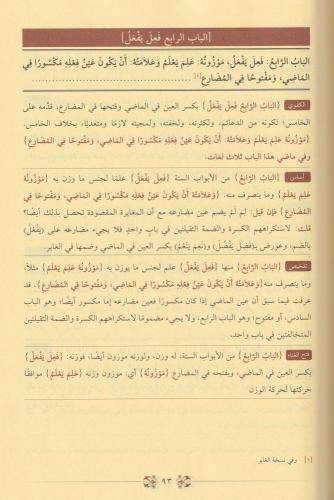 [الباب الرابع فَعِلَ يَفْعَلُ]
البَابُ الرَّابِعُ: فَعِلَ يَفْعَلُ، مَوْزُونُهُ: عَلِمَ يَعْلَمُ وَعَلَامَتُهُ: أَنْ يَكُونَ عَيْنُ فِعْلِهِ مَكْسُورًا فِي
المَاضِي، وَمَفْتُوحًا فِي المُضَارِعِ[١]
الكفوي {البَابُ الرَّابِعُ فَعِلَ يَفْعَلُ} بكسر العين في الماضي وفتحها في المضارع، قدَّمه على
الخامس؛ لكونه من الدعائم، ولكثرته، ولخفته، ولمجيئه لازمًا ومتعديًا، بخلاف الخامس.
{مَوْزُونُهُ عَلِمَ يَعْلَمُ وَعَلَامَتُهُ: أَنْ يَكُونَ عَيْنُ فِعْلِهِ مَكْسُورًا فِي المَاضِي، وَمَفْتُوحًا فِي المُضَارِعِ}
وفي ماضي هذا الباب ثلاث لغات:
أساس {البَابُ الرَّابِعُ} من الأبواب الستة {فَعِلَ يَفْعَلُ} علمًا لجنس ما وزن به {مَوْزُونُهُ
عَلِمَ يَعْلَمُ} وما يتصرف منه. {وَعَلَامَتُهُ أَنْ يَكُونَ عَيْنُ فِعْلِهِ مَكْسُورًا فِي المَاضِي، وَمَفْتُوحًا فِي
المُضَارِعِ} فإن قيل: لم لَمْ يضم عين مضارعه مع أن المغايرة المقصودة تحصل بذلك أيضًا؟
قلت: لاستكراههم الكسرة والضمة الثقيلتين في بابٍ واحدٍ فلا يجيء مضارعه على (يَفْعُلُ)
بالضم، وعورض بـ(فَضِلَ يَفْضُلُ) و(نَعِمَ يَنْعُمُ) بكسر العين في الماضي وضمها في الغابر.
تلخيص {البَابُ الرَّابِعُ} منها {فَعِلَ يَفْعَلُ} علم لجنس ما يوزن به {مَوْزُونُهُ عَلِمَ يَعْلَمُ} مثلًا،
وما يتصرف منه {وَعَلَامَتُهُ أَنْ يَكُونَ عَيْنُ فِعْلِهِ مَكْسُورًا فِي المَاضِي، وَمَفْتُوحًا فِي المُضَارِعِ}، قد
عرفت فيما سبق أن عين الماضي إذا كان مكسورًا فعين مضارعه إما مكسور أيضًا؛ وهو الباب
السادس، أو مفتوح؛ وهو الباب الرابع، ولا يجيء مضمومًا لاستكراههم الكسرة والضمة الثقيلتين
المتخالفتين في باب واحد،
فتح القناه {البَابُ الرَّابِعُ} من الأبواب الستة، له وزن، ولوزنه موزون أيضًا، فوزنه: {فَعِلَ يَفْعَلُ}
بكسر العين في الماضي، وبفتحه في المضارع {مَوْزُونُهُ} أي: موزون وزنه {عَلِمَ يَعْلَمُ} موافقًا
حركتها لحركة الوزن
[١] وفي نسخة الغابر.
٩٣